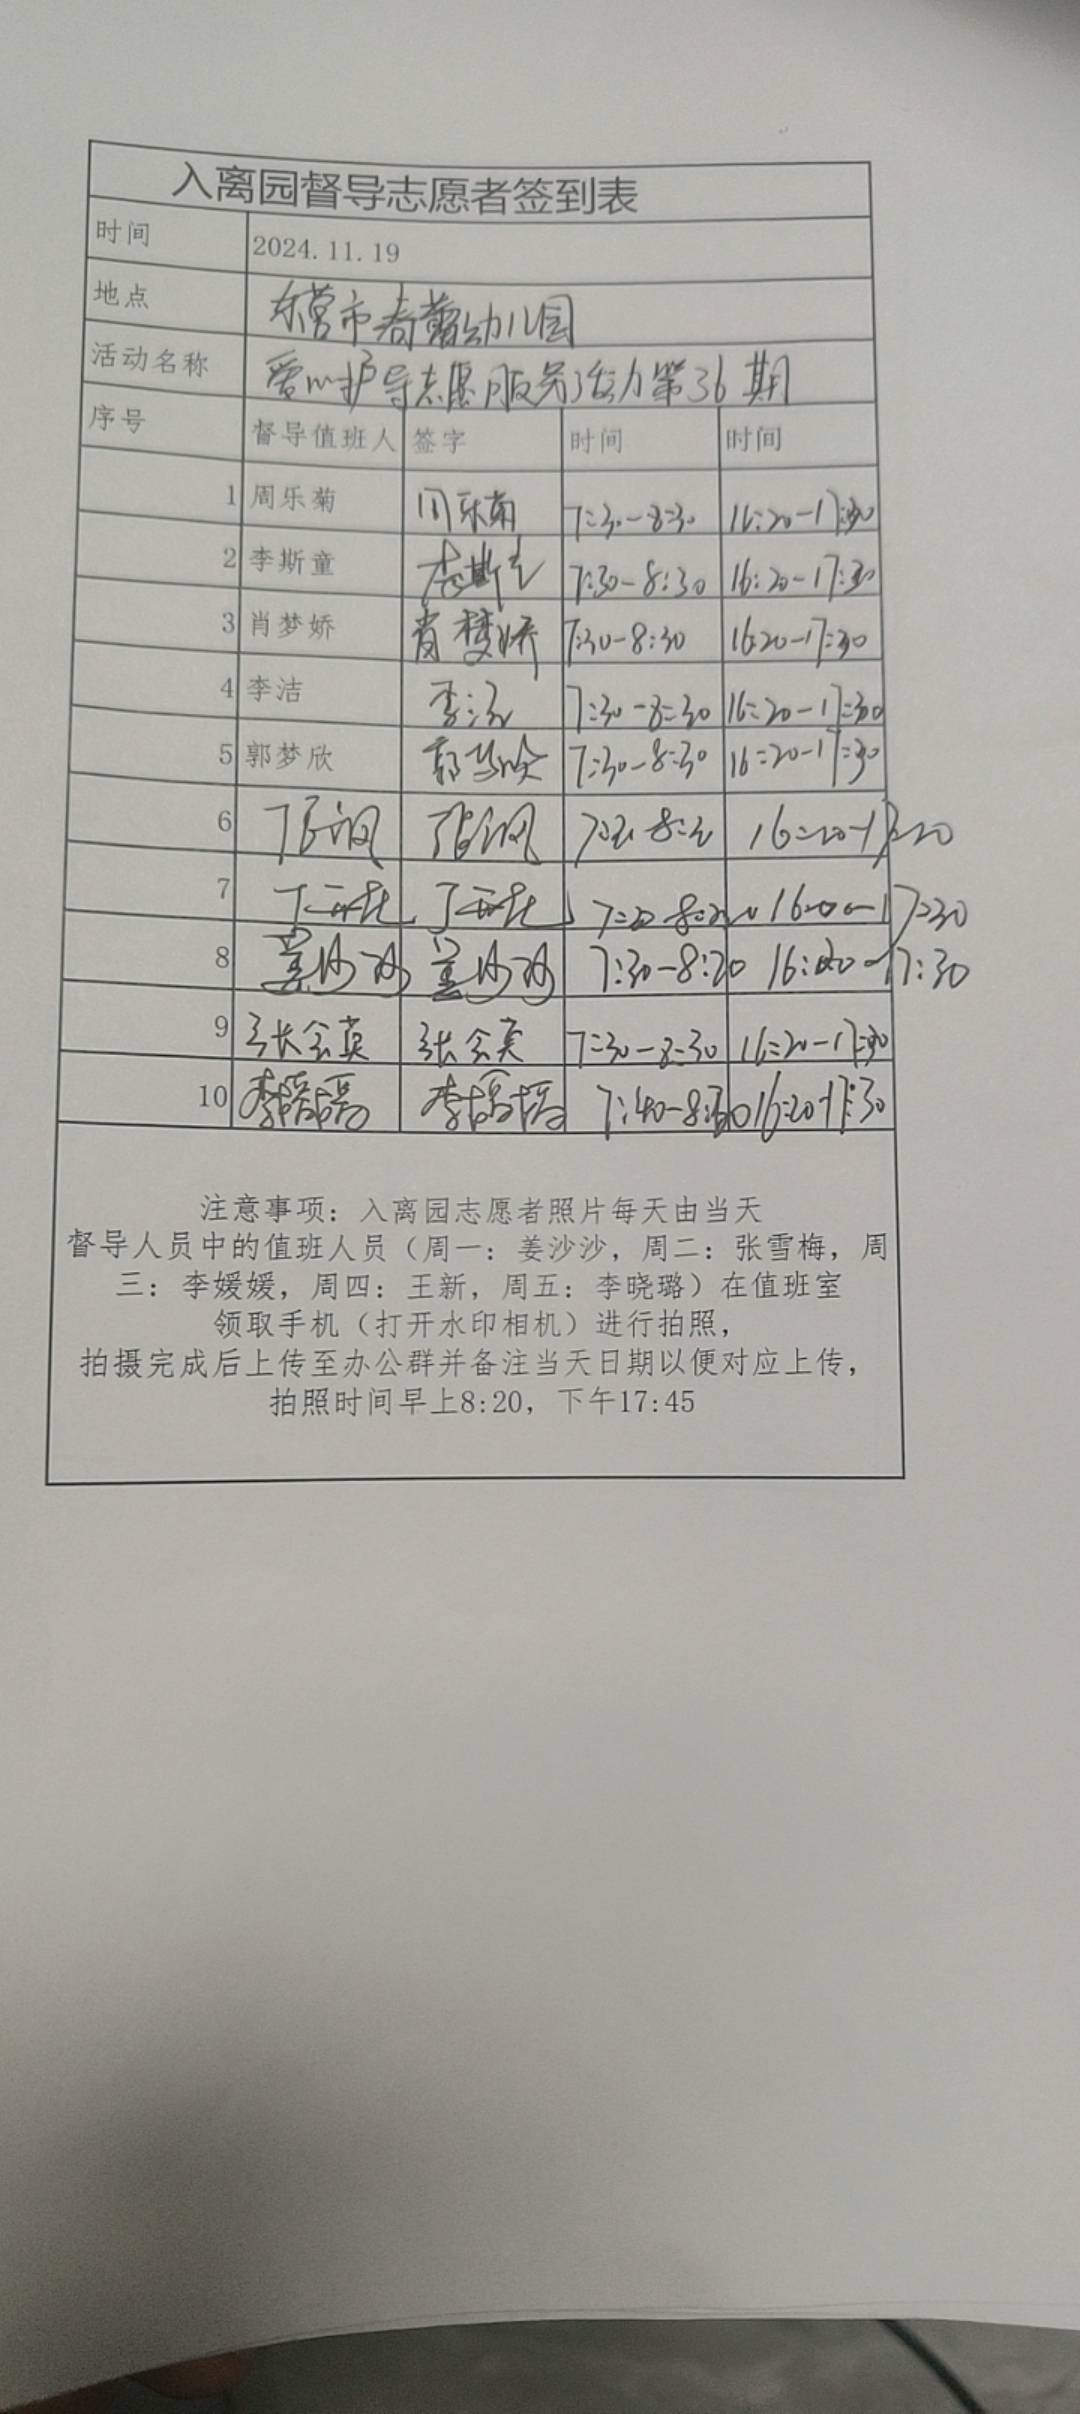 入离园督导志愿者签到表
时间 2024.11.19
地点 东营市春蕾幼儿园
活动名称 爱心护导志愿服务活动第36期
序号 督导值班人 签字 时间 时间
1 周乐菊 周乐菊 7:30-8:30 16:20-17:30
2 李斯童 李斯童 7:30-8:30 16:20-17:30
3 肖梦娇 肖梦娇 7:30-8:30 16:20-17:30
4 李洁 李洁 7:30-8:30 16:20-17:30
5 郭梦欣 郭梦欣 7:30-8:30 16:20-17:30
6
7 17:30
8 姜沙沙 姜沙沙 7:30-8:20 17:30
9 张会真 张会真 7:30-8:30 16:20-17:30
10 7:40-8:30 16:20-17:30
注意事项：入离园志愿者照片每天由当天
督导人员中的值班人员（周一：姜沙沙，周二：张雪梅，周
三：李媛媛，周四：王新，周五：李晓璐）在值班室
领取手机（打开水印相机）进行拍照，
拍摄完成后上传至办公群并备注当天日期以便对应上传，
拍照时间早上8:20，下午17:45